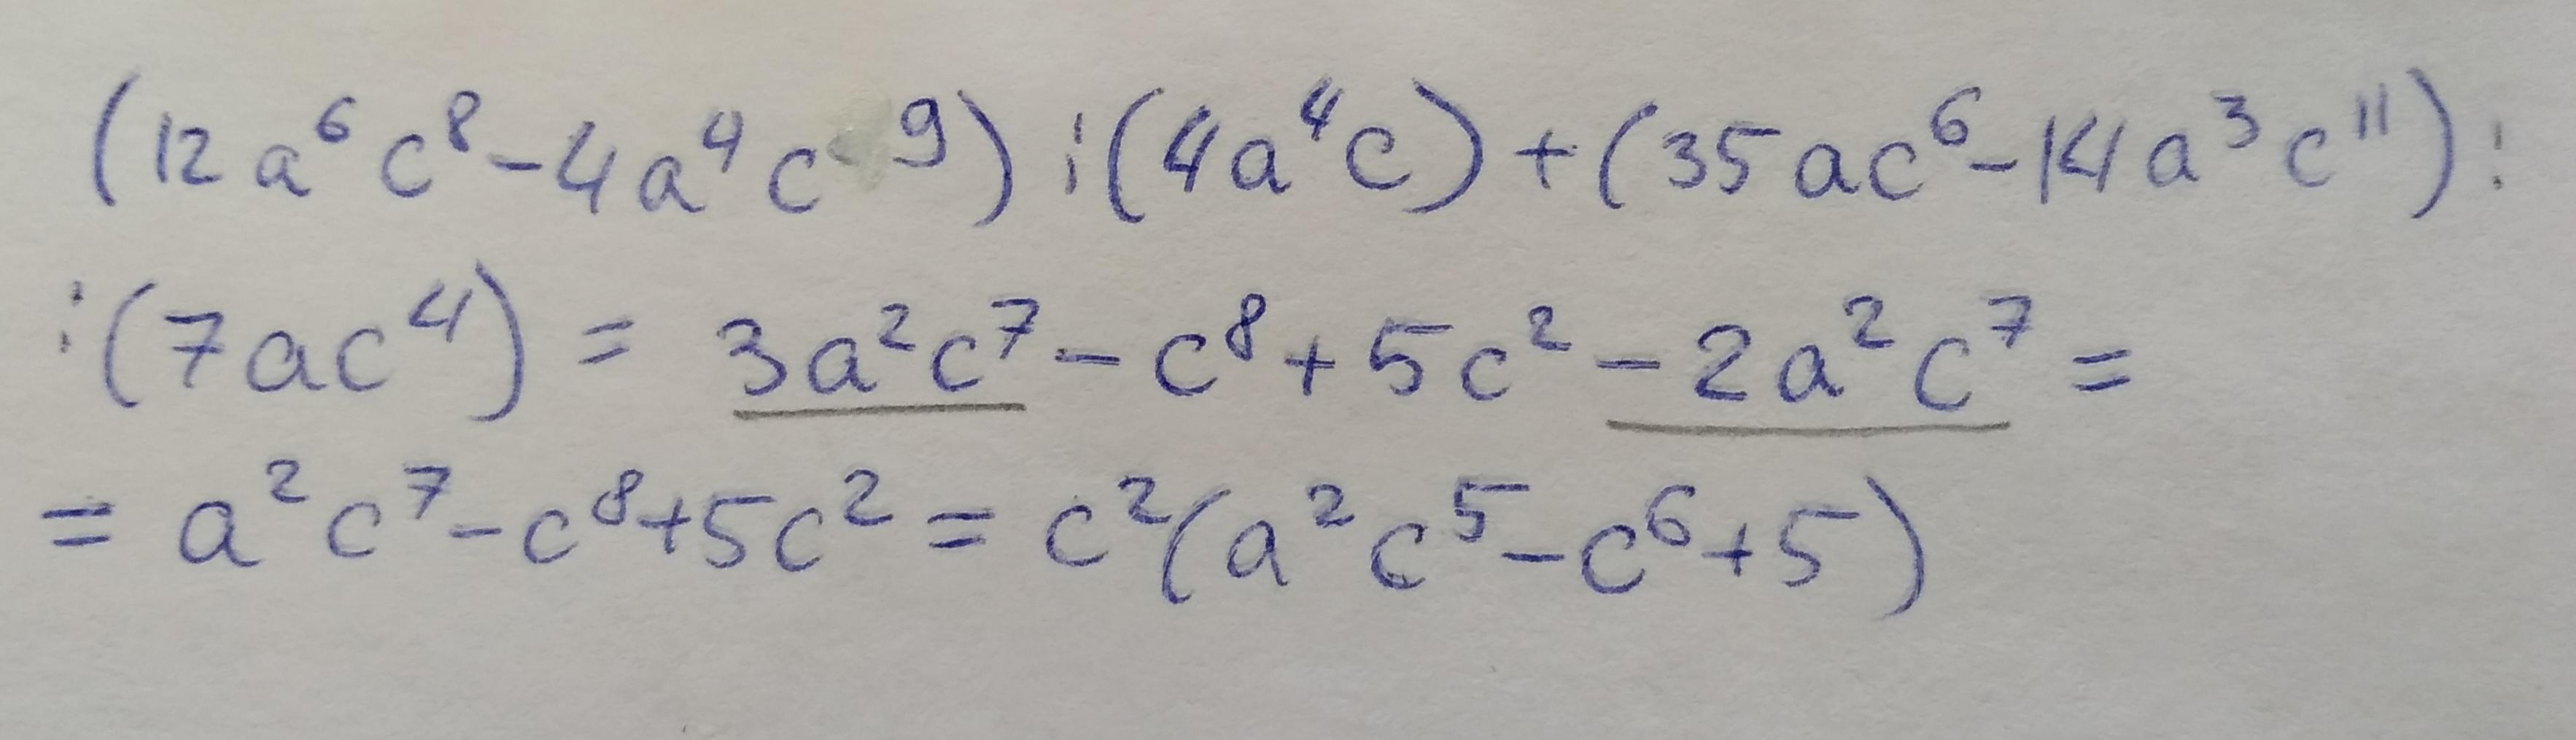 (12a⁶c⁸-4a⁴c⁹):(4a⁴c)+(35ac⁶-14a³c¹¹):
:(7ac⁴) = 3a²c⁷-c⁸+5c²-2a²c⁷=
= a²c⁷-c⁸+5c² = c²(a²c⁵-c⁶+5)